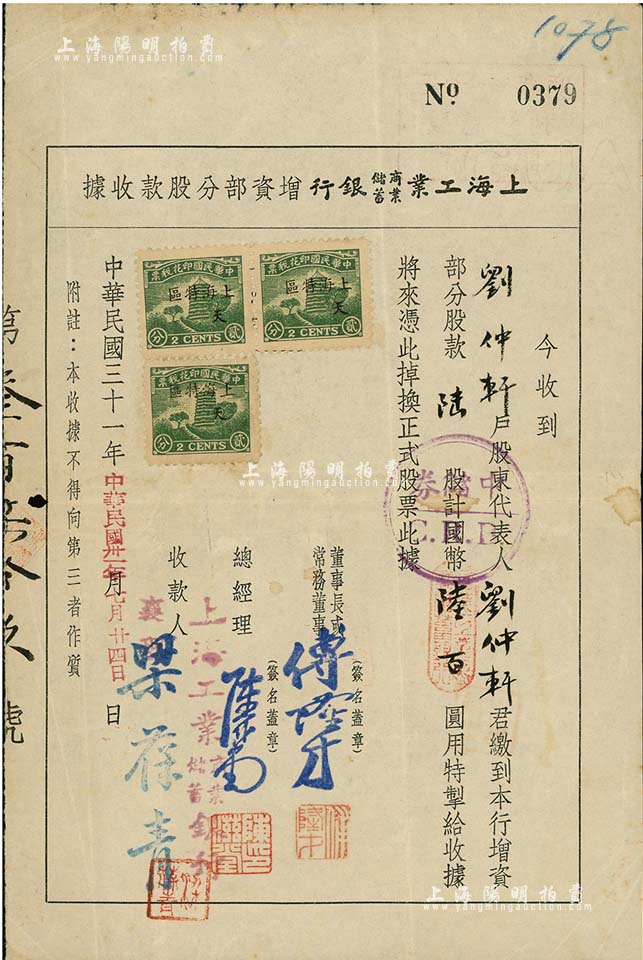 上海陽明拍賣
www.yangmingauction.com
1078
Nº 0379
上海工業商業儲蓄銀行增資部分股款收據
今收到
劉仲軒戶股東代表人劉仲軒君繳到本行增資
部分股款陸股計國幣陸百圓用特掣給收據
將來憑此掉換正式股票此據
中儲券
C.R.D
董事長或
常務董事
(簽名蓋章)
總經理
(簽名蓋章)
收款人
上海工業商業儲蓄銀行
襄理
梁葆青
中華民國三十一年 月 日
中華民國卅一年七月廿四日
附註：本收據不得向第三者作質
中華民國印花稅票
上海特區
天
貳 2 CENTS 分
中華民國印花稅票
上海特區
天
貳 2 CENTS 分
中華民國印花稅票
上海特區
天
貳 2 CENTS 分
第叁百柒拾玖號
上海陽明拍賣
www.yangmingauction.com
上海陽明拍賣
www.yangmingauction.com